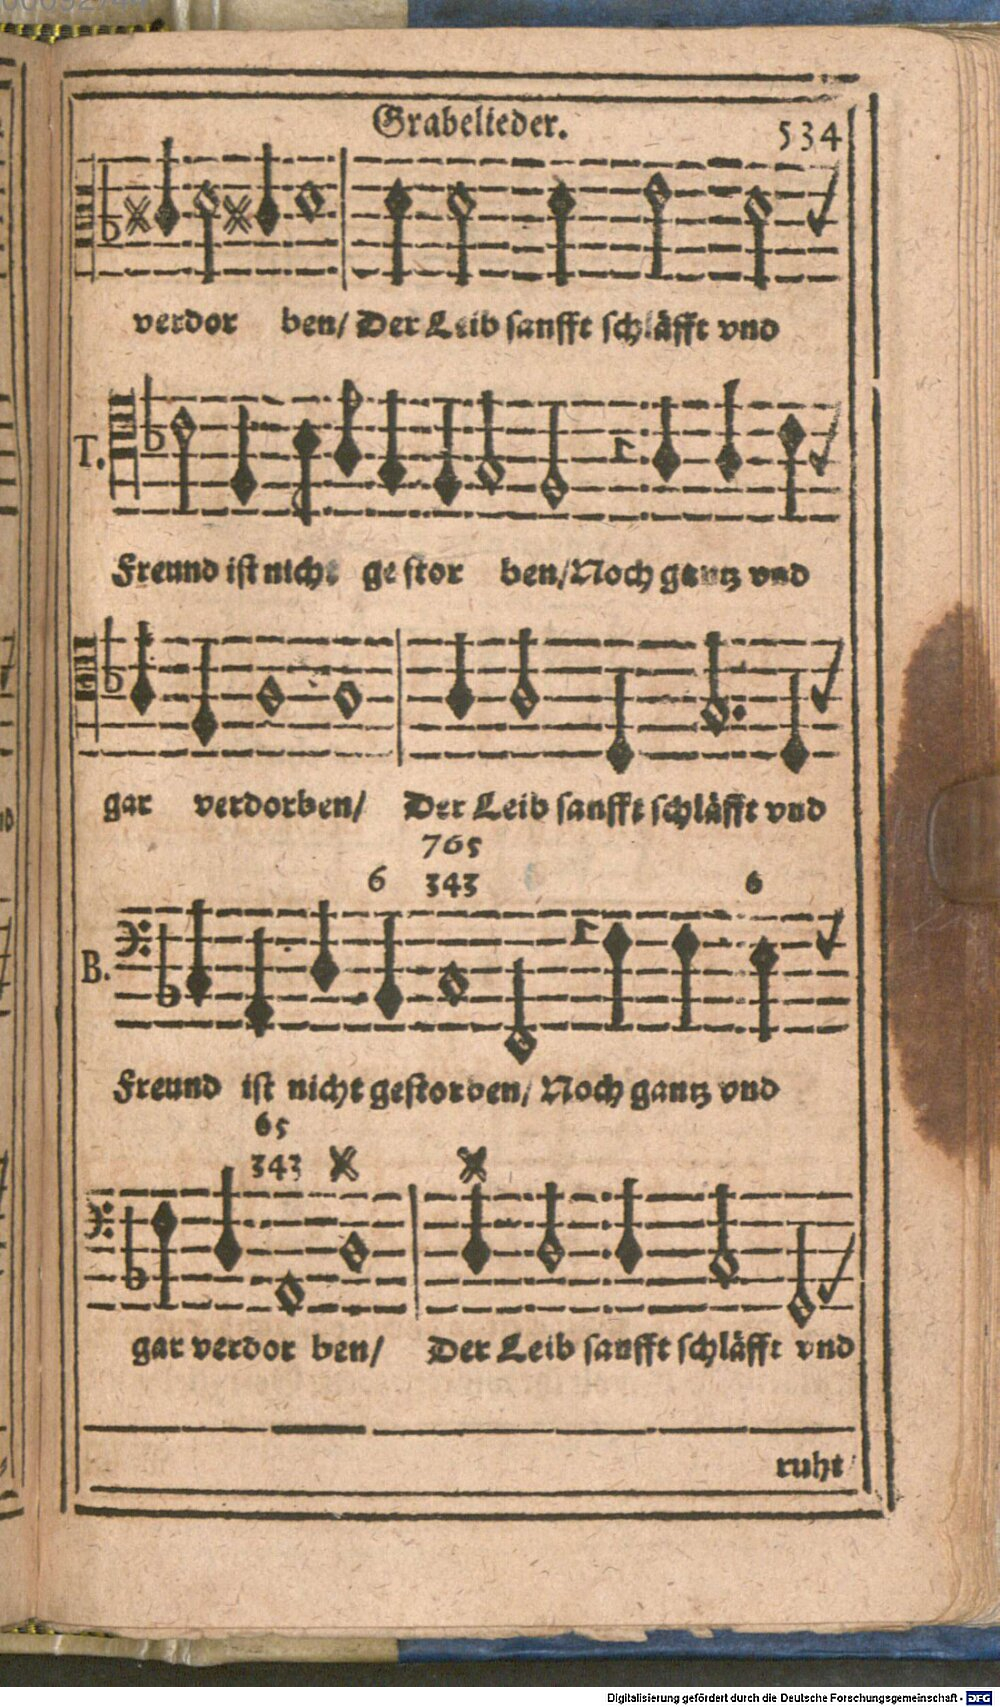 Grabelieder. 534
verdor ben/ Der Leib sanfft schläfft vnd
T.
Freund ist nicht ge stor ben/ Noch gantz vnd
gar verdorben/ Der Leib sanfft schläfft vnd
765
6 343 6
B.
Freund ist nicht gestorben/ Noch gantz vnd
65
343
gar verdor ben/ Der Leib sanfft schläfft vnd
ruht
Digitalisierung gefördert durch die Deutsche Forschungsgemeinschaft - DFG